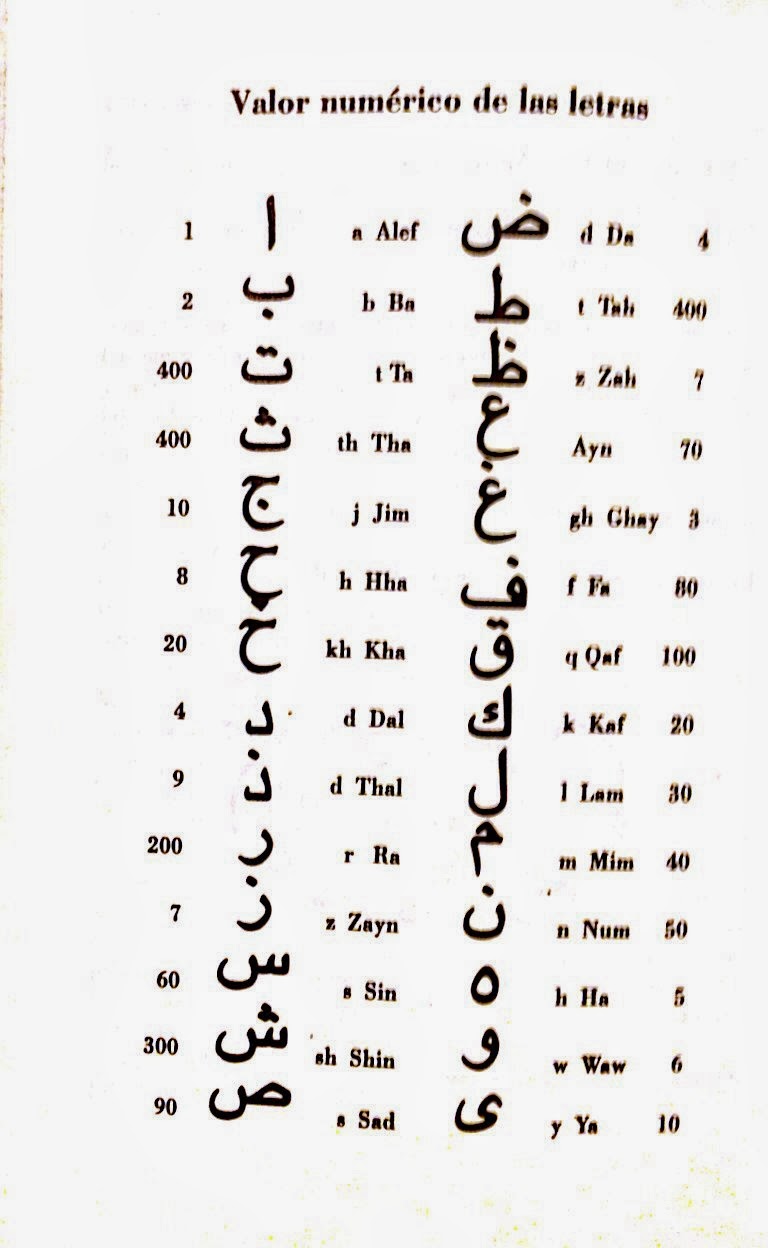 Valor numérico de las letras
1 ا a Alef ض d Da 4
2 ب b Ba ط t Tah 400
400 ت t Ta ظ z Zah 7
400 ث th Tha ع Ayn 70
10 ج j Jim غ gh Ghay 3
8 ح h Hha ف f Fa 80
20 خ kh Kha ق q Qaf 100
4 د d Dal ك k Kaf 20
9 ذ d Thal ل l Lam 30
200 ر r Ra م m Mim 40
7 ز z Zayn ن n Num 50
60 س s Sin ه h Ha 5
300 ش sh Shin و w Waw 6
90 ص s Sad ى y Ya 10